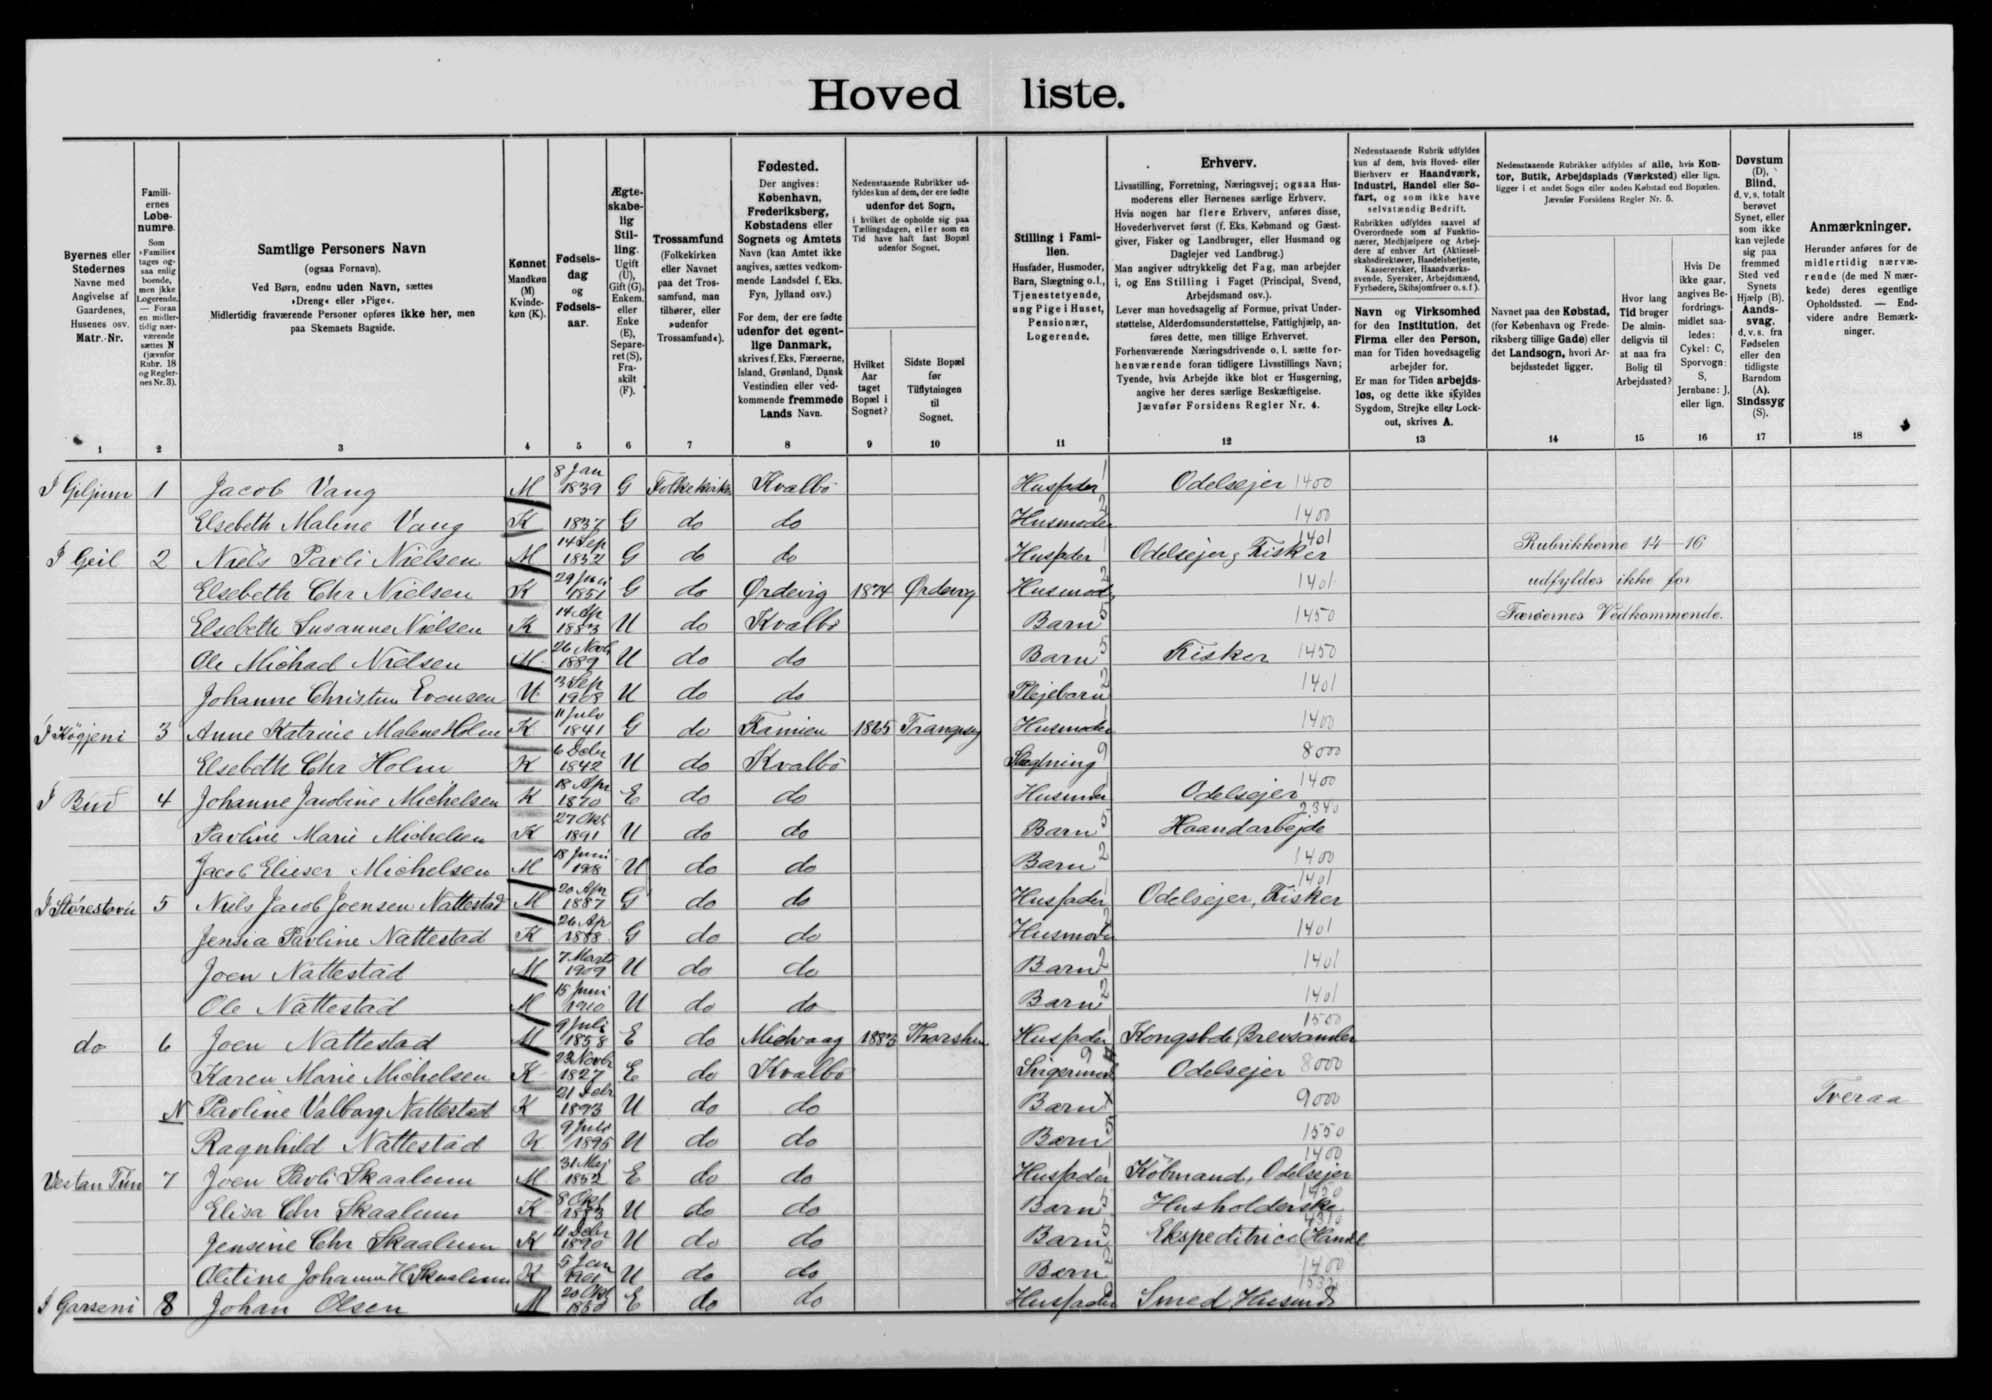 Hoved liste.
Byernes eller Stedernes Navne med Angivelse af Gaardenes, Husenes osv. Matr.-Nr.
Familiernes Løbenumre. Som »Familie« tages ogsaa enlig boende, men ikke Logerende. — Foran en midlertidig nærværende sættes N (jævnfør Rubr. 18 og Regler nes Nr. 3).
Samtlige Personers Navn (ogsaa Fornavn). Ved Børn, endnu uden Navn, sættes »Dreng« eller »Pige«. Midlertidig fraværende Personer opføres ikke her, men paa Skemaets Bagside.
Kønnet Mandkøn (M) Kvindekøn (K).
Fødselsdag og Fødselsaar.
Ægteskabelig Stilling. Ugift (U), Gift (G), Enkem. eller Enke (E), Separeret (S), Fraskilt (F).
Trossamfund (Folkekirken eller Navnet paa det Trossamfund, man tilhører, eller »udenfor Trossamfund«).
Fødested. Der angives: København, Frederiksberg, Købstadens eller Sognets og Amtets Navn (kan Amtet ikke angives, sættes vedkommende Landsdel f. Eks. Fyn, Jylland osv.) For dem, der ere fødte udenfor det egentlige Danmark, skrives f. Eks. Færøerne, Island, Grønland, Dansk Vestindien eller vedkommende fremmede Lands Navn.
Nedenstaaende Rubrikker udfyldes kun af dem, der ere fødte udenfor det Sogn, i hvilket de opholde sig paa Tællingsdagen, eller som en Tid have haft fast Bopæl udenfor Sognet.
Hvilket Aar taget Bopæl i Sognet?
Sidste Bopæl før Tilflytningen til Sognet.
Stilling i Familien. Husfader, Husmoder, Barn, Slægtning o. l., Tjenestetyende, ung Pige i Huset, Pensionær, Logerende.
Erhverv. Livsstilling, Forretning, Næringsvej; ogsaa Husmoderens eller Børnenes særlige Erhverv. Hvis nogen har flere Erhverv, anføres disse, Hovederhvervet først (f. Eks. Købmand og Gæstgiver, Fisker og Landbruger, eller Husmand og Daglejer ved Landbrug.) Man angiver udtrykkelig det Fag, man arbejder i, og Ens Stilling i Faget (Principal, Svend, Arbejdsmand osv.). Lever man hovedsagelig af Formue, privat Understøttelse, Alderdomsunderstøttelse, Fattighjælp, anføres dette, men tillige Erhvervet. Forhenværende Næringsdrivende o. l. sætte forhenværende foran tidligere Livsstillings Navn; Tyende, hvis Arbejde ikke blot er Husgerning, angive her deres særlige Beskæftigelse. Jævnfør Forsidens Regler Nr. 4.
Nedenstaaende Rubrik udfyldes kun af dem, hvis Hoved- eller Bierhverv er Haandværk, Industri, Handel eller Søfart, og som ikke have selvstændig Bedrift. Rubrikken udfyldes saavel af Overordnede som af Funktionærer, Medhjælpere og Arbejdere af enhver Art (Aktieselskabsdirektører, Handelsbetjente, Kasserersker, Haandværkssvende, Syersker, Arbejdsmænd, Fyrbødere, Skibsjomfruer o. s. f.).
Navn og Virksomhed for den Institution, det Firma eller den Person, man for Tiden hovedsagelig arbejder for. Er man for Tiden arbejdsløs, og dette ikke skyldes Sygdom, Strejke eller Lockout, skrives A.
Nedenstaaende Rubrikker udfyldes af alle, hvis Kontor, Butik, Arbejdsplads (Værksted) eller lign. ligger i et andet Sogn eller anden Købstad end Bopælen. Jævnfør Forsidens Regler Nr. 5.
Navnet paa den Købstad, (for København og Frederiksberg tillige Gade) eller det Landsogn, hvori Arbejdsstedet ligger.
Hvor lang Tid bruger De almindeligvis til at naa fra Bolig til Arbejdssted?
Hvis De ikke gaar, angives Befordringsmidlet saaledes: Cykel: C, Sporvogn: S, Jernbane: J, eller lign.
Døvstum (D), Blind, d. v. s. totalt berøvet Synet, eller som ikke kan vejlede sig paa fremmed Sted ved Synets Hjælp (B). Aandssvag. d. v. s. fra Fødselen eller den tidligste Barndom (A). Sindssyg (S).
Anmærkninger. Herunder anføres for de midlertidig nærværende (de med N mærkede) deres egentlige Opholdssted. — Endvidere andre Bemærkninger.
1 2 3 4 5 6 7 8 9 10 11 12 13 14 15 16 17 18
I Giljum 1 Jacob Vang M 8 Jan 1839 G Folkekirken Kvalbø Husfader 1 Odelsejer 1400
Elsebeth Malene Vang K 1837 G do do Husmoder 2 1400
I Geil 2 Niels Pavli Nielsen M 14 Sep 1852 G do do Husfader 1 Odelsejer, Fisker 1401 Rubrikkerne 14-16
Elsebeth Chr Nielsen K 29 Juni 1851 G do Ørdevig 1874 Ørdevig Husmod 2 1401 udfyldes ikke for
Elsebeth Susanne Nielsen K 14 Ap 1883 U do Kvalbø Barn 5 1450 Færøernes Vedkommende.
Ole Michael Nielsen M 26 Novb 1889 U do do Barn 5 Fisker 1450
Johanne Christine Evensen U 3 Sep 1908 U do do Plejebarn 2 1401
I Køgjeni 3 Anne Katrine Malene Holm K 11 July 1841 G do Famien 1865 Husmoder 1400
Elsebeth Chr Holm K 6 Debr 1842 U do Kvalbø Slægtning 9 8000
I Búd 4 Johanne Jacobine Michelsen K 18 Apr 1870 E do do Husmoder 1 Odelsejer 1400
Pavline Marie Michelsen K 27 Okt 1891 U do do Barn 5 Haandarbejde 2340
Jacob Elieser Michelsen M 18 Juni U do do Barn 2 1400
I Størestovu 5 Niels Jacob Joensen Nattestad M 20 Apr 1887 G do do Husfader 1 Odelsejer, Fisker 1401
Jensia Pavline Nattestad K 26 Ap 1888 G do do Husmoder 2 1401
Joen Nattestad M 7 Marts 1909 U do do Barn 2 1401
Ole Nattestad M 15 Juni 1910 U do do Barn 2 1401
do 6 Joen Nattestad M 9 Juli 1858 E do Midvaag 1883 Thorshavn Husfader 1 Kongsbde, Brevsamler 1500
Karen Marie Michelsen K 23 Novbr 1827 E do Kvalbø Svigermod 9 Odelsejer 8000
N Pavline Valborg Nattestad K 21 Debr 1893 U do do Barn 9000 Tveraa
Ragnhild Nattestad K 9 Juli 1895 U do do Barn 5 1550
Vestan Tún 7 Joen Pavli Skaalum M 31 Maj 1852 E do do Husfader 1 Købmand, Odelsejer 1400
Elisa Chr Skaalum K 8 Okt 1883 U do do Barn 5 Husholderske 1450
Jensine Chr Skaalum K 11 Debr 1890 U do do Barn 5 Ekspeditrice (Handel
Oletine Johanne H Skaalum K 5 Jan 1901 U do do Barn 2 1400
I Garseni 8 Johan Olsen M 20 Okt E do do Husfader Smed, Husmd